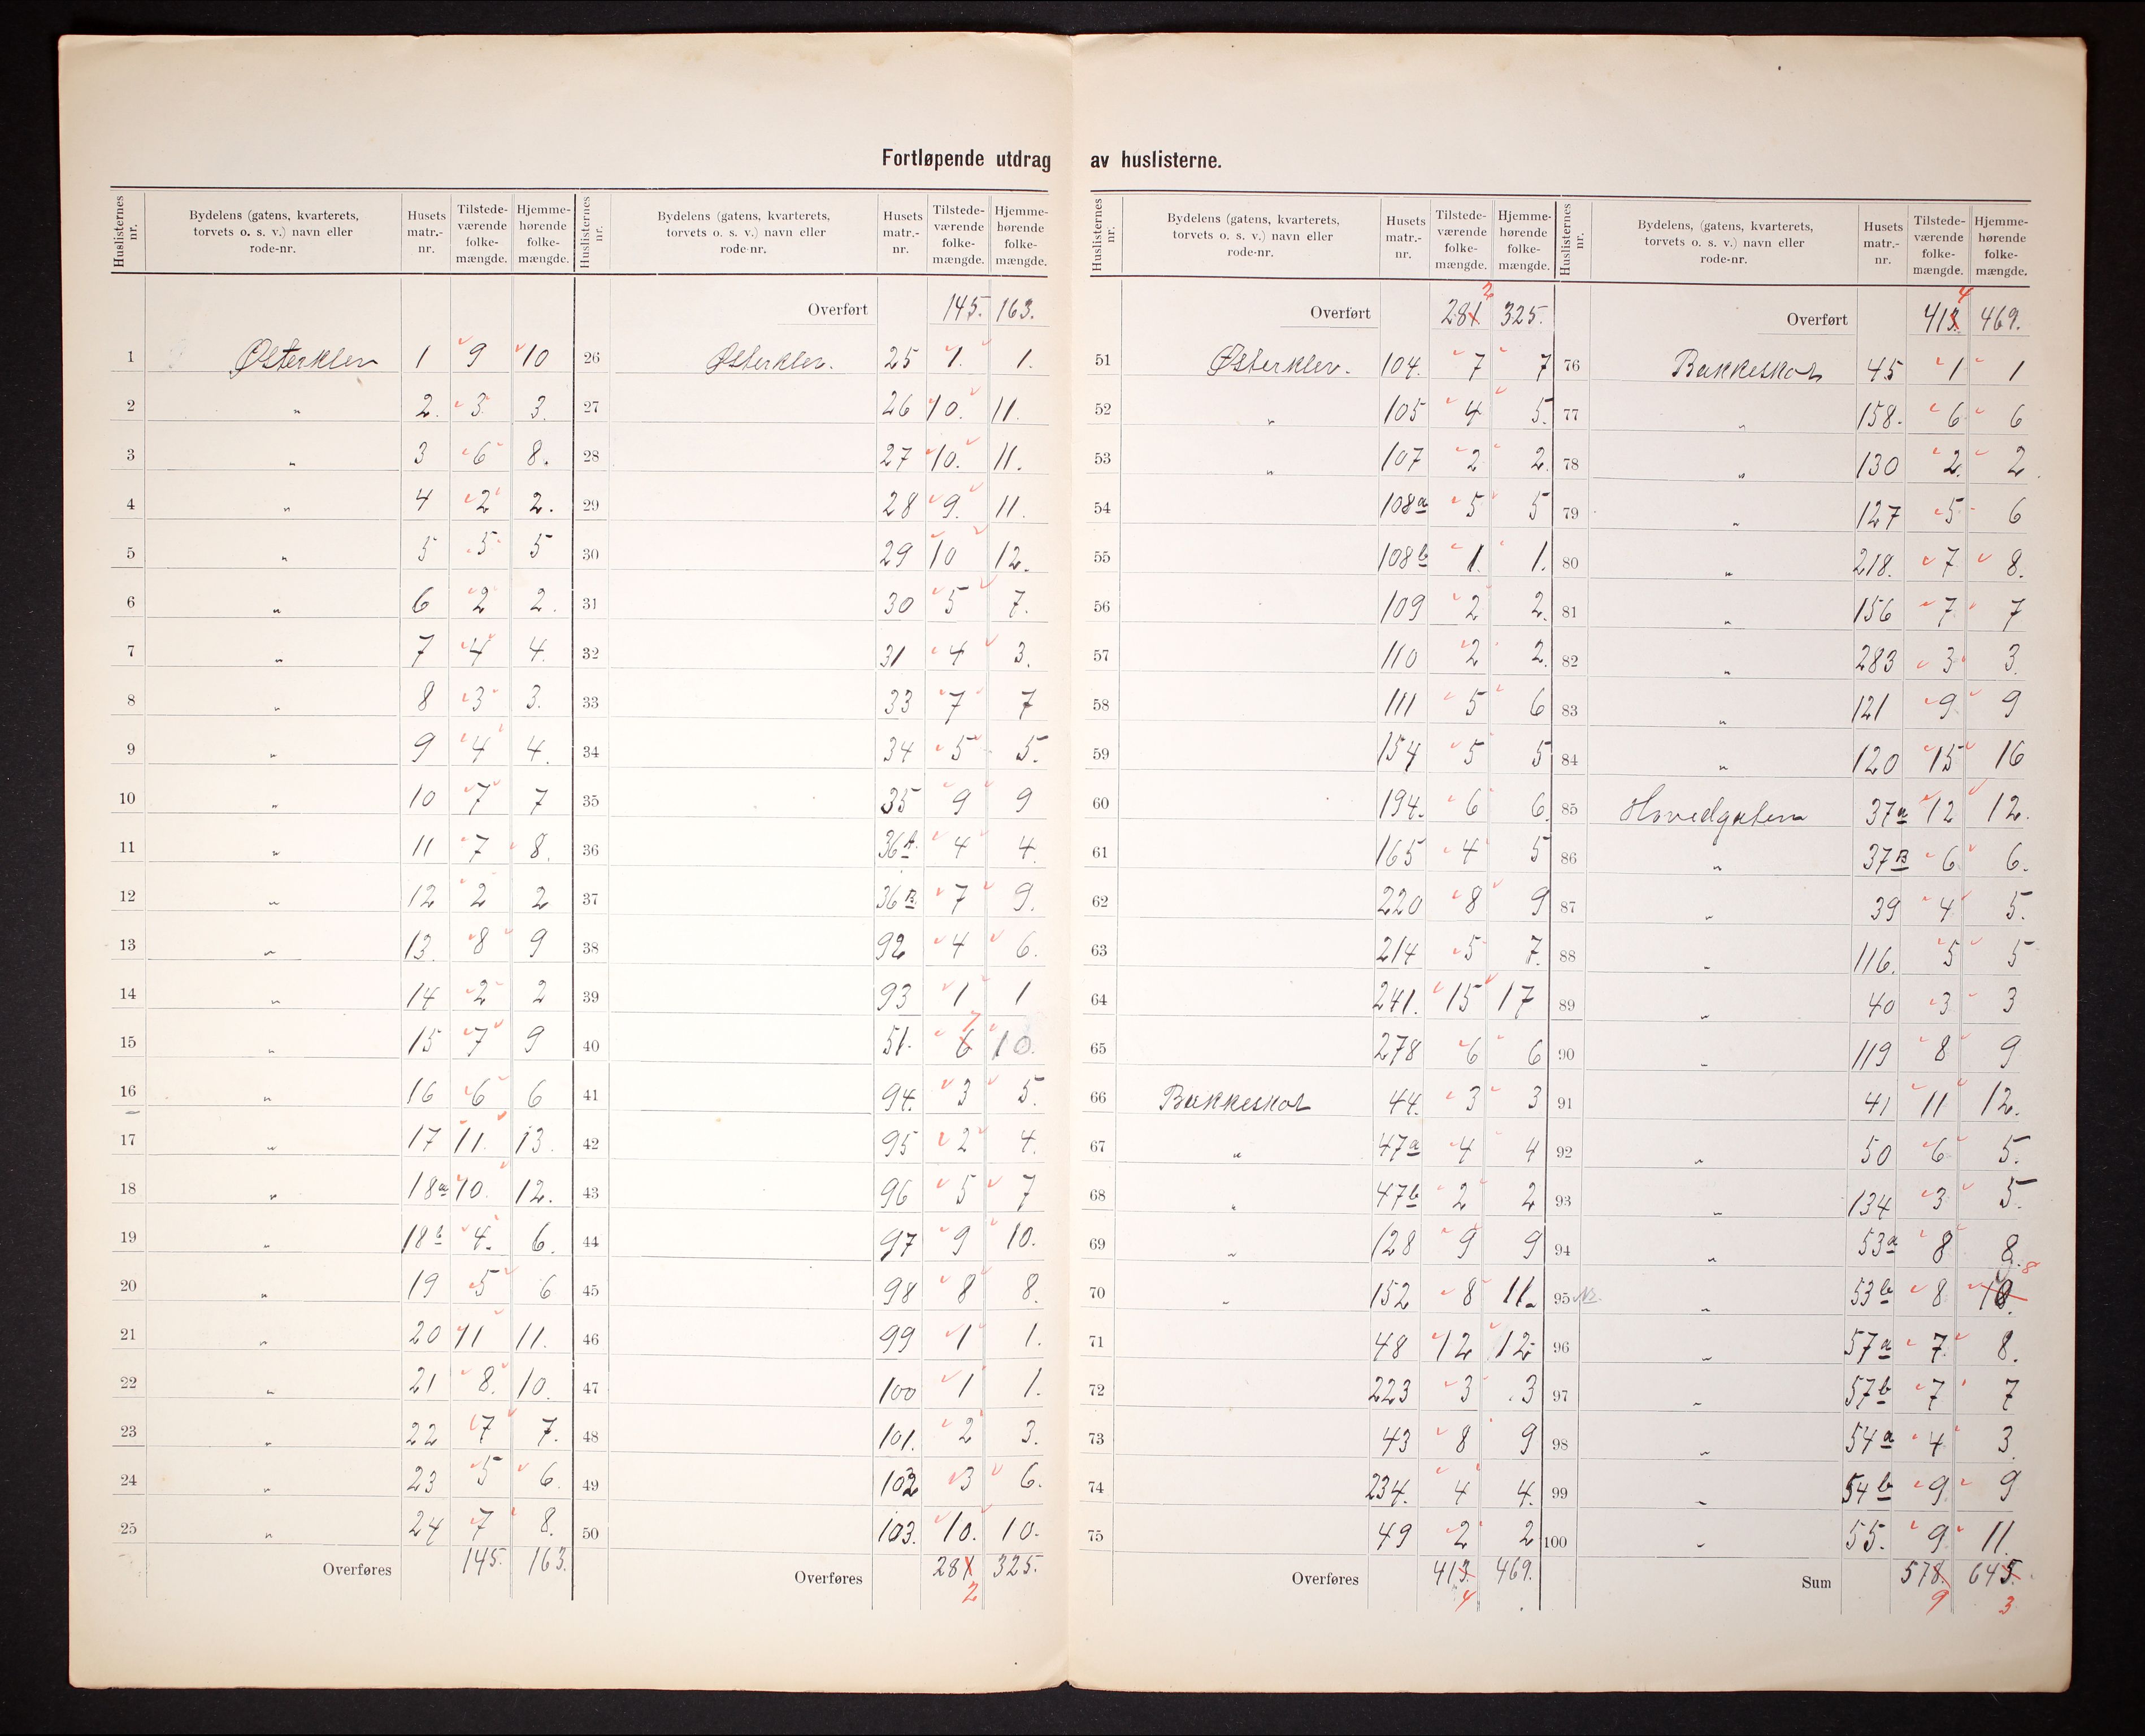 Fortløpende utdrag av huslisterne.
Huslisternes nr. | Bydelens (gatens, kvarterets, torvets o. s. v.) navn eller rode-nr. | Husets matr.-nr. | Tilstede-værende folke-mængde. | Hjemme-hørende folke-mængde.
1 Østerklev 1 9 10
2 " 2. 3 3.
3 " 3 6 8.
4 " 4 2 2.
5 " 5 5 5
6 " 6 2 2.
7 " 7 4 4.
8 " 8 3 3.
9 " 9 4 4.
10 " 10 7 7
11 " 11 7 8.
12 " 12 2 2
13 " 13. 8 9
14 " 14 2 2
15 " 15 7 9
16 " 16 6 6
17 " 17 11. 13.
18 " 18a 10. 12.
19 " 18b 4. 6.
20 " 19 5 6
21 " 20 11 11.
22 " 21 8. 10.
23 " 22 7 7.
24 " 23 5 6.
25 " 24 7 8.
Overføres 145. 163.
Huslisternes nr. | Bydelens (gatens, kvarterets, torvets o. s. v.) navn eller rode-nr. | Husets matr.-nr. | Tilstede-værende folke-mængde. | Hjemme-hørende folke-mængde.
Overført 145. 163.
26 Østerklev. 25 1. 1.
27 26 10. 11.
28 27 10. 11.
29 28 9. 11.
30 29 10 12.
31 30 5 7.
32 31 4 3.
33 33 7 7
34 34 5 5.
35 35 9 9
36 36A. 4 4.
37 36B. 7 9.
38 92 4 6.
39 93 1 1
40 51. 6 7 10.
41 94. 3 5.
42 95 2 4.
43 96 5 7
44 97 9 10.
45 98 8 8.
46 99 1 1.
47 100 1 1.
48 101. 2 3.
49 102 3 6.
50 103. 10. 10.
Overføres 281 2 325.
Huslisternes nr. | Bydelens (gatens, kvarterets, torvets o. s. v.) navn eller rode-nr. | Husets matr.-nr. | Tilstede-værende folke-mængde. | Hjemme-hørende folke-mængde.
Overført 281 2 325.
51 Østerklev. 104. 7 7
52 " 105 4 5.
53 " 107 2 2.
54 108a 5 5
55 108b 1. 1.
56 109 2 2.
57 110 2 2.
58 111 5 6
59 154 5 5
60 194. 6 6.
61 165 4 5
62 220 8 9
63 214 5 7.
64 241. 15 17
65 278 6 6
66 Bakkeskot 44. 3 3
67 " 47a 4 4
68 " 47b 2 2
69 " 128 9 9
70 " 152 8 11.
71 48 12 12
72 223 3 3
73 43 8 9
74 234. 4 4.
75 49 2 2
Overføres 413. 4 469.
Huslisternes nr. | Bydelens, (gatens, kvarterets, torvets o. s. v.) navn eller rode-nr. | Husets matr.-nr. | Tilstede-værende folke-mængde. | Hjemme-hørende folke-mængde.
Overført 413. 4 469.
76 Bakkeskot 45 1 1
77 " 158. 6 6
78 " 130 2. 2
79 " 127 5 6
80 " 218. 7 8.
81 " 156 7 7
82 " 283 3 3.
83 " 121 9 9
84 " 120 15 16
85 Hovedgaten 37a 12 12.
86 " 37B 6 6.
87 " 39 4 5.
88 " 116. 5 5
89 " 40 3 3
90 " 119 8 9
91 41 11 12.
92 " 50 6 5.
93 " 134 3 5.
94 " 53a 8 8.
95 " 53b 8 10. 8
96 " 57a 7 8.
97 " 57b 7 7
98 " 54a 4 3
99 " 54b 9 9
100 " 55. 9 11.
Sum 578. 9 645. 3